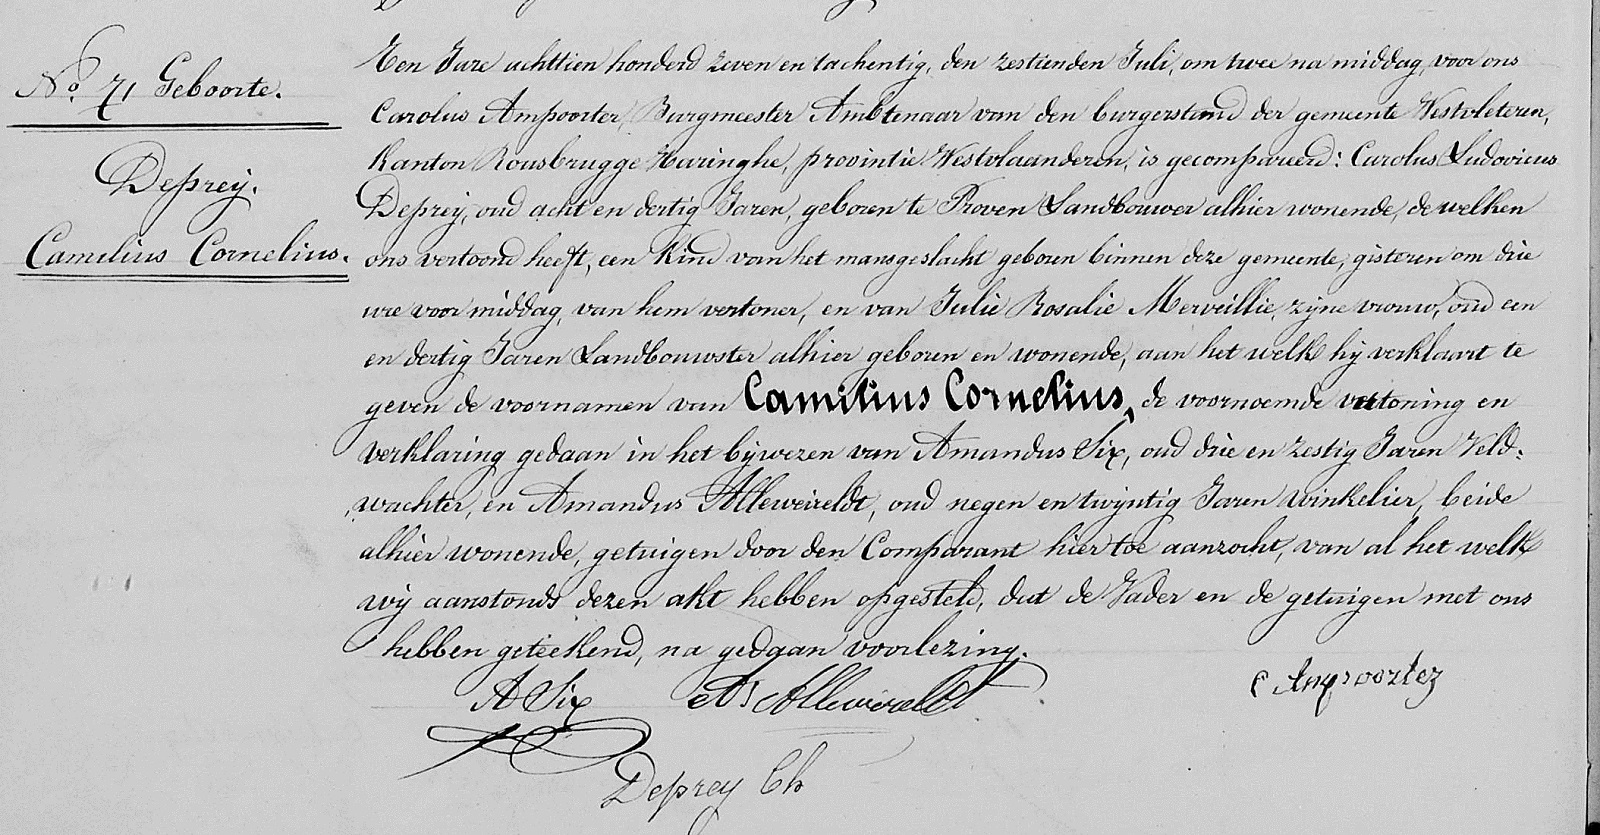 No. 71 Geboorte.
Deprey.
Camilius Cornelius.
Ten Jare achttien honderd zeven en tachentig, den zestienden Juli, om twee na middag, voor ons
Carolus Ampoorter, Burgmeester Ambtenaar van den burgerstand der gemeente Westvleteren,
Kanton Rousbrugge Haringhe, provintie Westvlaanderen, is gecompareerd: Carolus Ludovicus
Deprey, oud acht en dertig Jaren, geboren te Proven Landbouwer alhier wonende, de welken
ons vertoond heeft, een Kind van het mansgeslacht geboren binnen deze gemeente, gisteren om drie
ure voor middag, van hem vertoner, en van Julie Rosalie Merveillie, zijne vrouw, oud een
en dertig Jaren Landbouwster alhier geboren en wonende, aan het welk hij verklaart te
geven de voornamen van Camilius Cornelius, de voornoemde vertoning en
verklaring gedaan in het bijwezen van Amandus Six, oud drie en zestig Jaren Veld-
wachter, en Amandus Alleweireldt, oud negen en twijntig Jaren Winkelier, beide
alhier wonende, getuigen door den Comparant hier toe aanzocht, van al het welk
wij aanstonds dezen akt hebben opgesteld, dat de Vader en de getuigen met ons
hebben geteekend, na gedaan voorlezing.
C Ampoorter
A Six Ad Alleweireldt
Deprey Ch